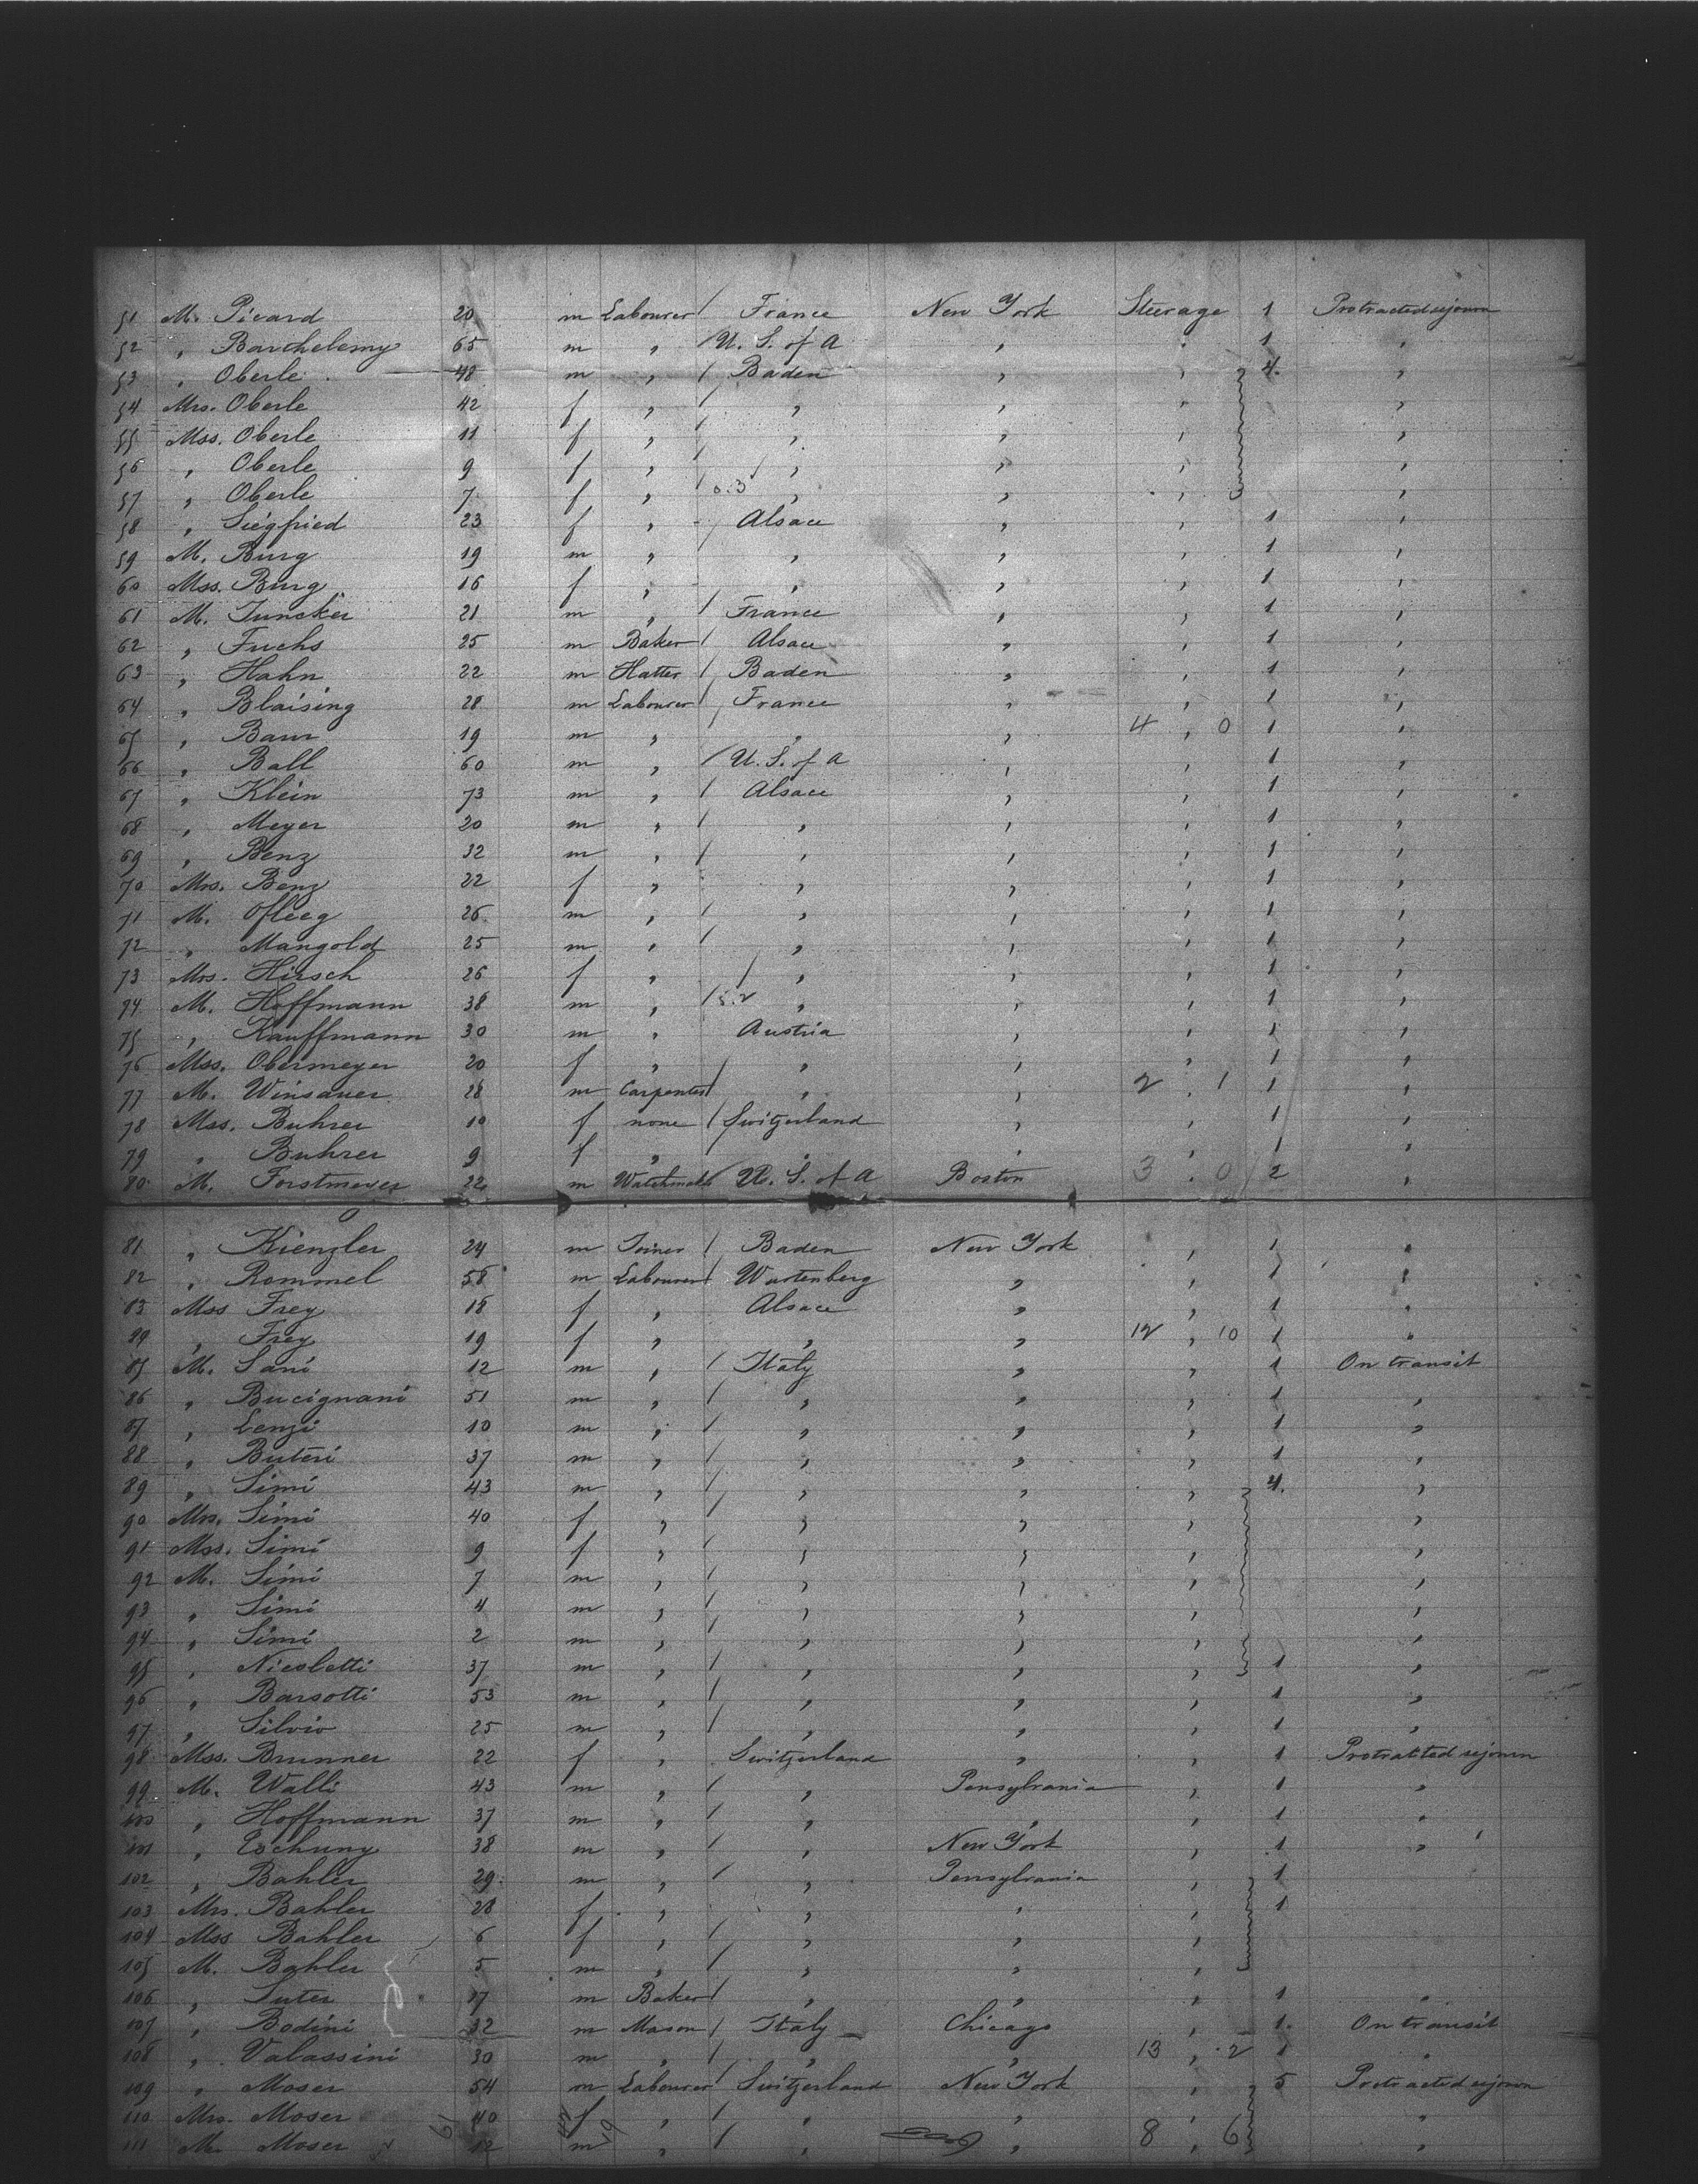 51 M. Picard 20 m Labourer / France New York Steerage 1 Protracted sejourn
52 " Barthelemy 65 m " / U. S. of A " " 1 "
53 " Oberle 48 m " / Baden " " 4. "
54 Mrs. Oberle 42 f " / " " " "
55 Mss. Oberle 11 f " / " " " "
56 " Oberle 9 f " / " " " "
57 " Oberle 7 f " / 0.3 " " " "
58 " Siegfried 23 f " - Alsace " " 1 "
59 M. Burg 19 m " " " " 1 "
60 Mss. Burg 16 f " - " " " 1 "
61 M. Juncker 21 m " / France " " 1 "
62 " Fuchs 25 m Baker / Alsace " " 1 "
63 " Hahn 22 m Hatter / Baden " " 1 "
64 " Blaising 28 m Labourer / France " " 1 "
65 " Baur 19 m " / " " 4 " 0 1 "
66 " Ball 60 m " / U. S. of A " " 1 "
67 " Klein 73 m " / Alsace " " 1 "
68 " Meyer 20 m " / " " " 1 "
69 " Benz 32 m " / " " " 1 "
70 Mrs. Benz 22 f " " " " 1 "
71 M. Ofleeg 26 m " / " " " 1 "
72 " Mangold 25 m " / " " " 1 "
73 Mrs. Hirsch 26 f " / " " " 1 "
74 M. Hoffmann 38 m " / " " " 1 "
75 " Kauffmann 30 m " Austria " " 1 "
76 Mss. Obermeyer 20 f " / " " " 1 "
77 M. Winsauer 28 m Carpenter / " " 2 " 1 1 "
78 Mss. Buhrer 10 f none / Switzerland " " 1 "
79 " Buhrer 9 f " / " " " 1 "
80 M. Forstmeyer 22 m Watchmak / U. S. of A Boston 3 " 0 2 "
81 " Kienzler 24 m Joiner / Baden New York " 1 "
82 " Rommel 58 m Labourer / Wurtenberg " " 1 "
83 Mss Frey 18 f " Alsace " " 1 "
84 " Frey 19 f " " " 12 " 10 1 "
85 M. Sani 12 m " / Italy " " 1 On transit
86 " Bucignani 51 m " / " " " 1 "
87 " Lenzi 10 m " / " " " 1 "
88 " Buteri 37 m " / " " " 1 "
89 " Simi 43 m " / " " " 4. "
90 Mrs. Simi 40 f " / " " " "
91 Mss. Simi 9 f " / " " " "
92 M. Simi 7 m " / " " " "
93 " Simi 4 m " / " " " "
94 " Simi 2 m " / " " " "
95 " Nicoletti 37 m " / " " " 1 "
96 " Barsotti 53 m " / " " " 1 "
97 " Silvio 25 m " / " " " 1 "
98 Mss. Brunner 22 f " Switzerland " " 1 Protracted sejourn
99 M. Walli 43 m " / " Pensylvania " 1 "
100 " Hoffmann 37 m " / " " " 1 "
101 " Eschung 38 m " / " New York " 1 "
102 " Bahler 29 m " / " Pensylvania " 1
103 Mrs. Bahler 28 f " " " " 1
104 Mss Bahler 6 f " / " " "
105 M. Bahler 5 m " / " " "
106 " Suter 17 m Baker / " " " 1 "
107 " Bodini 32 m Mason / Italy Chicago " 1. On transit
108 " Valassini 30 m " / " " 13 " 2 1 "
109 " Moser 54 m Labourer / Switzerland New York " 5 Protracted sejourn
110 Mrs. Moser 40 f " / " " " "
111 M. Moser 12 m " / " " 8 " 6 "